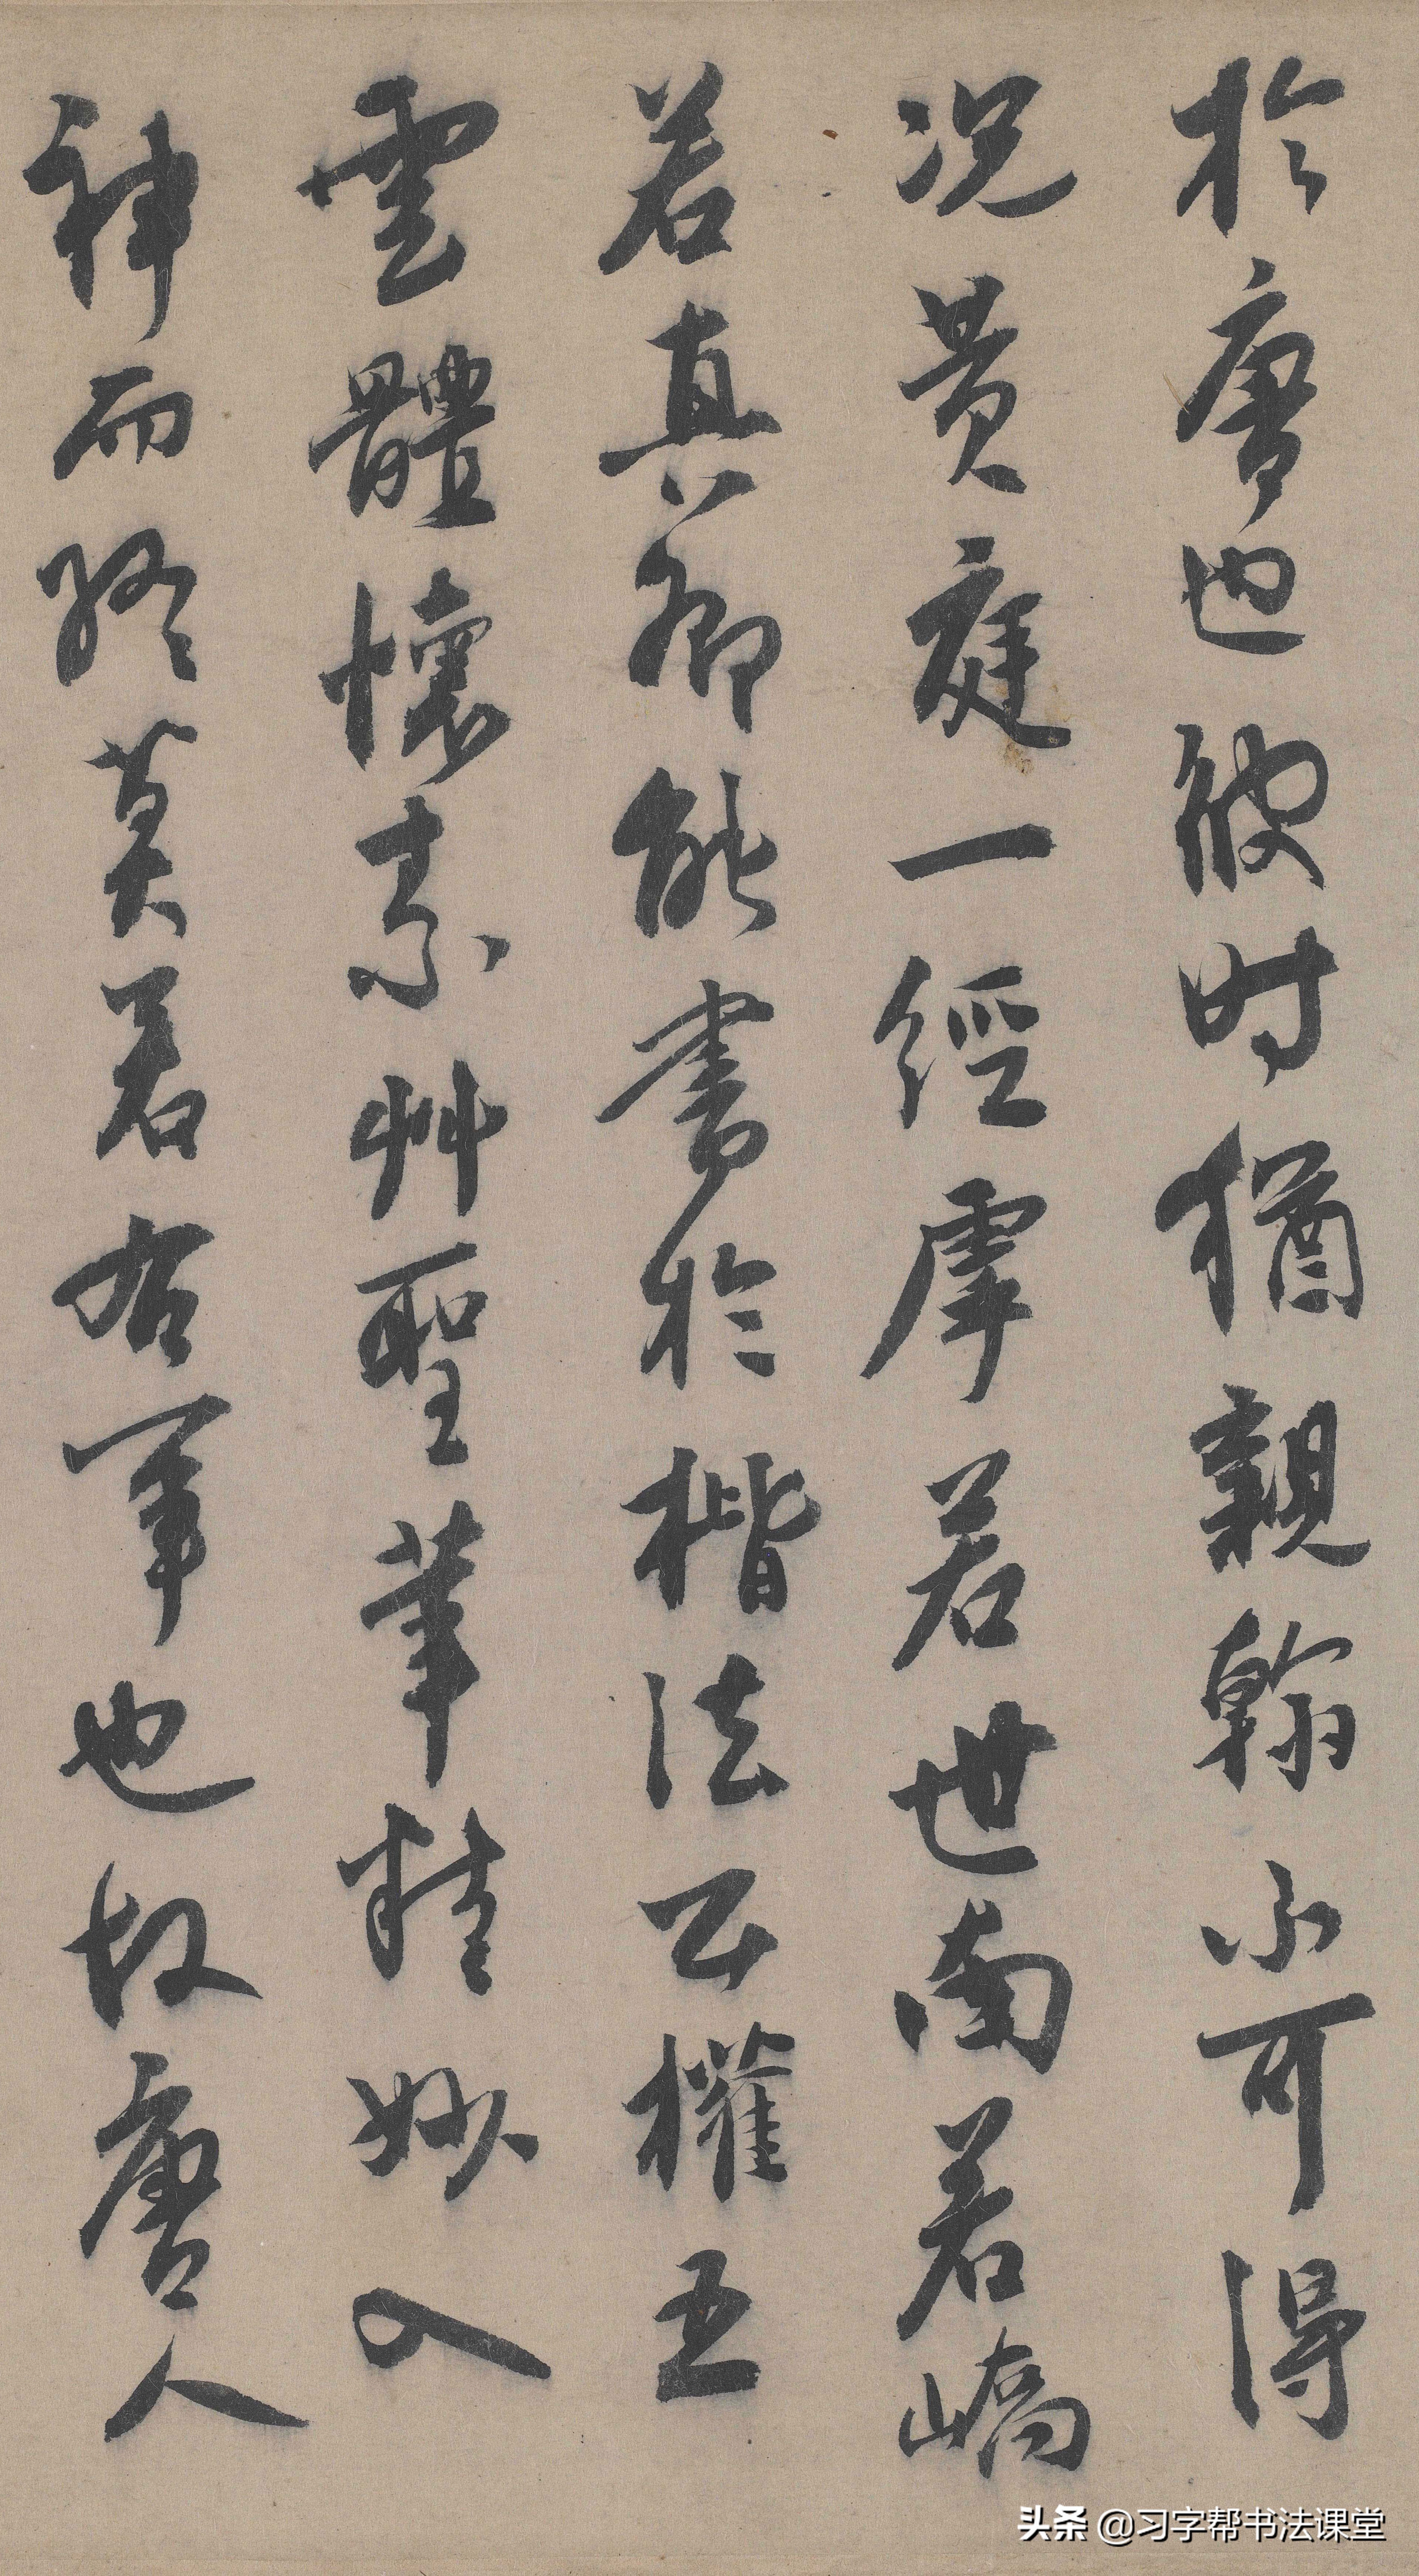 於唐也彼时猶親翰不可得
况黄庭一經虖若世南若嶠
若真卿能書於楷法公權五
雲體懷素艸聖筆精妙入
神而終莫若右軍也故唐人
头条 @习字帮书法课堂